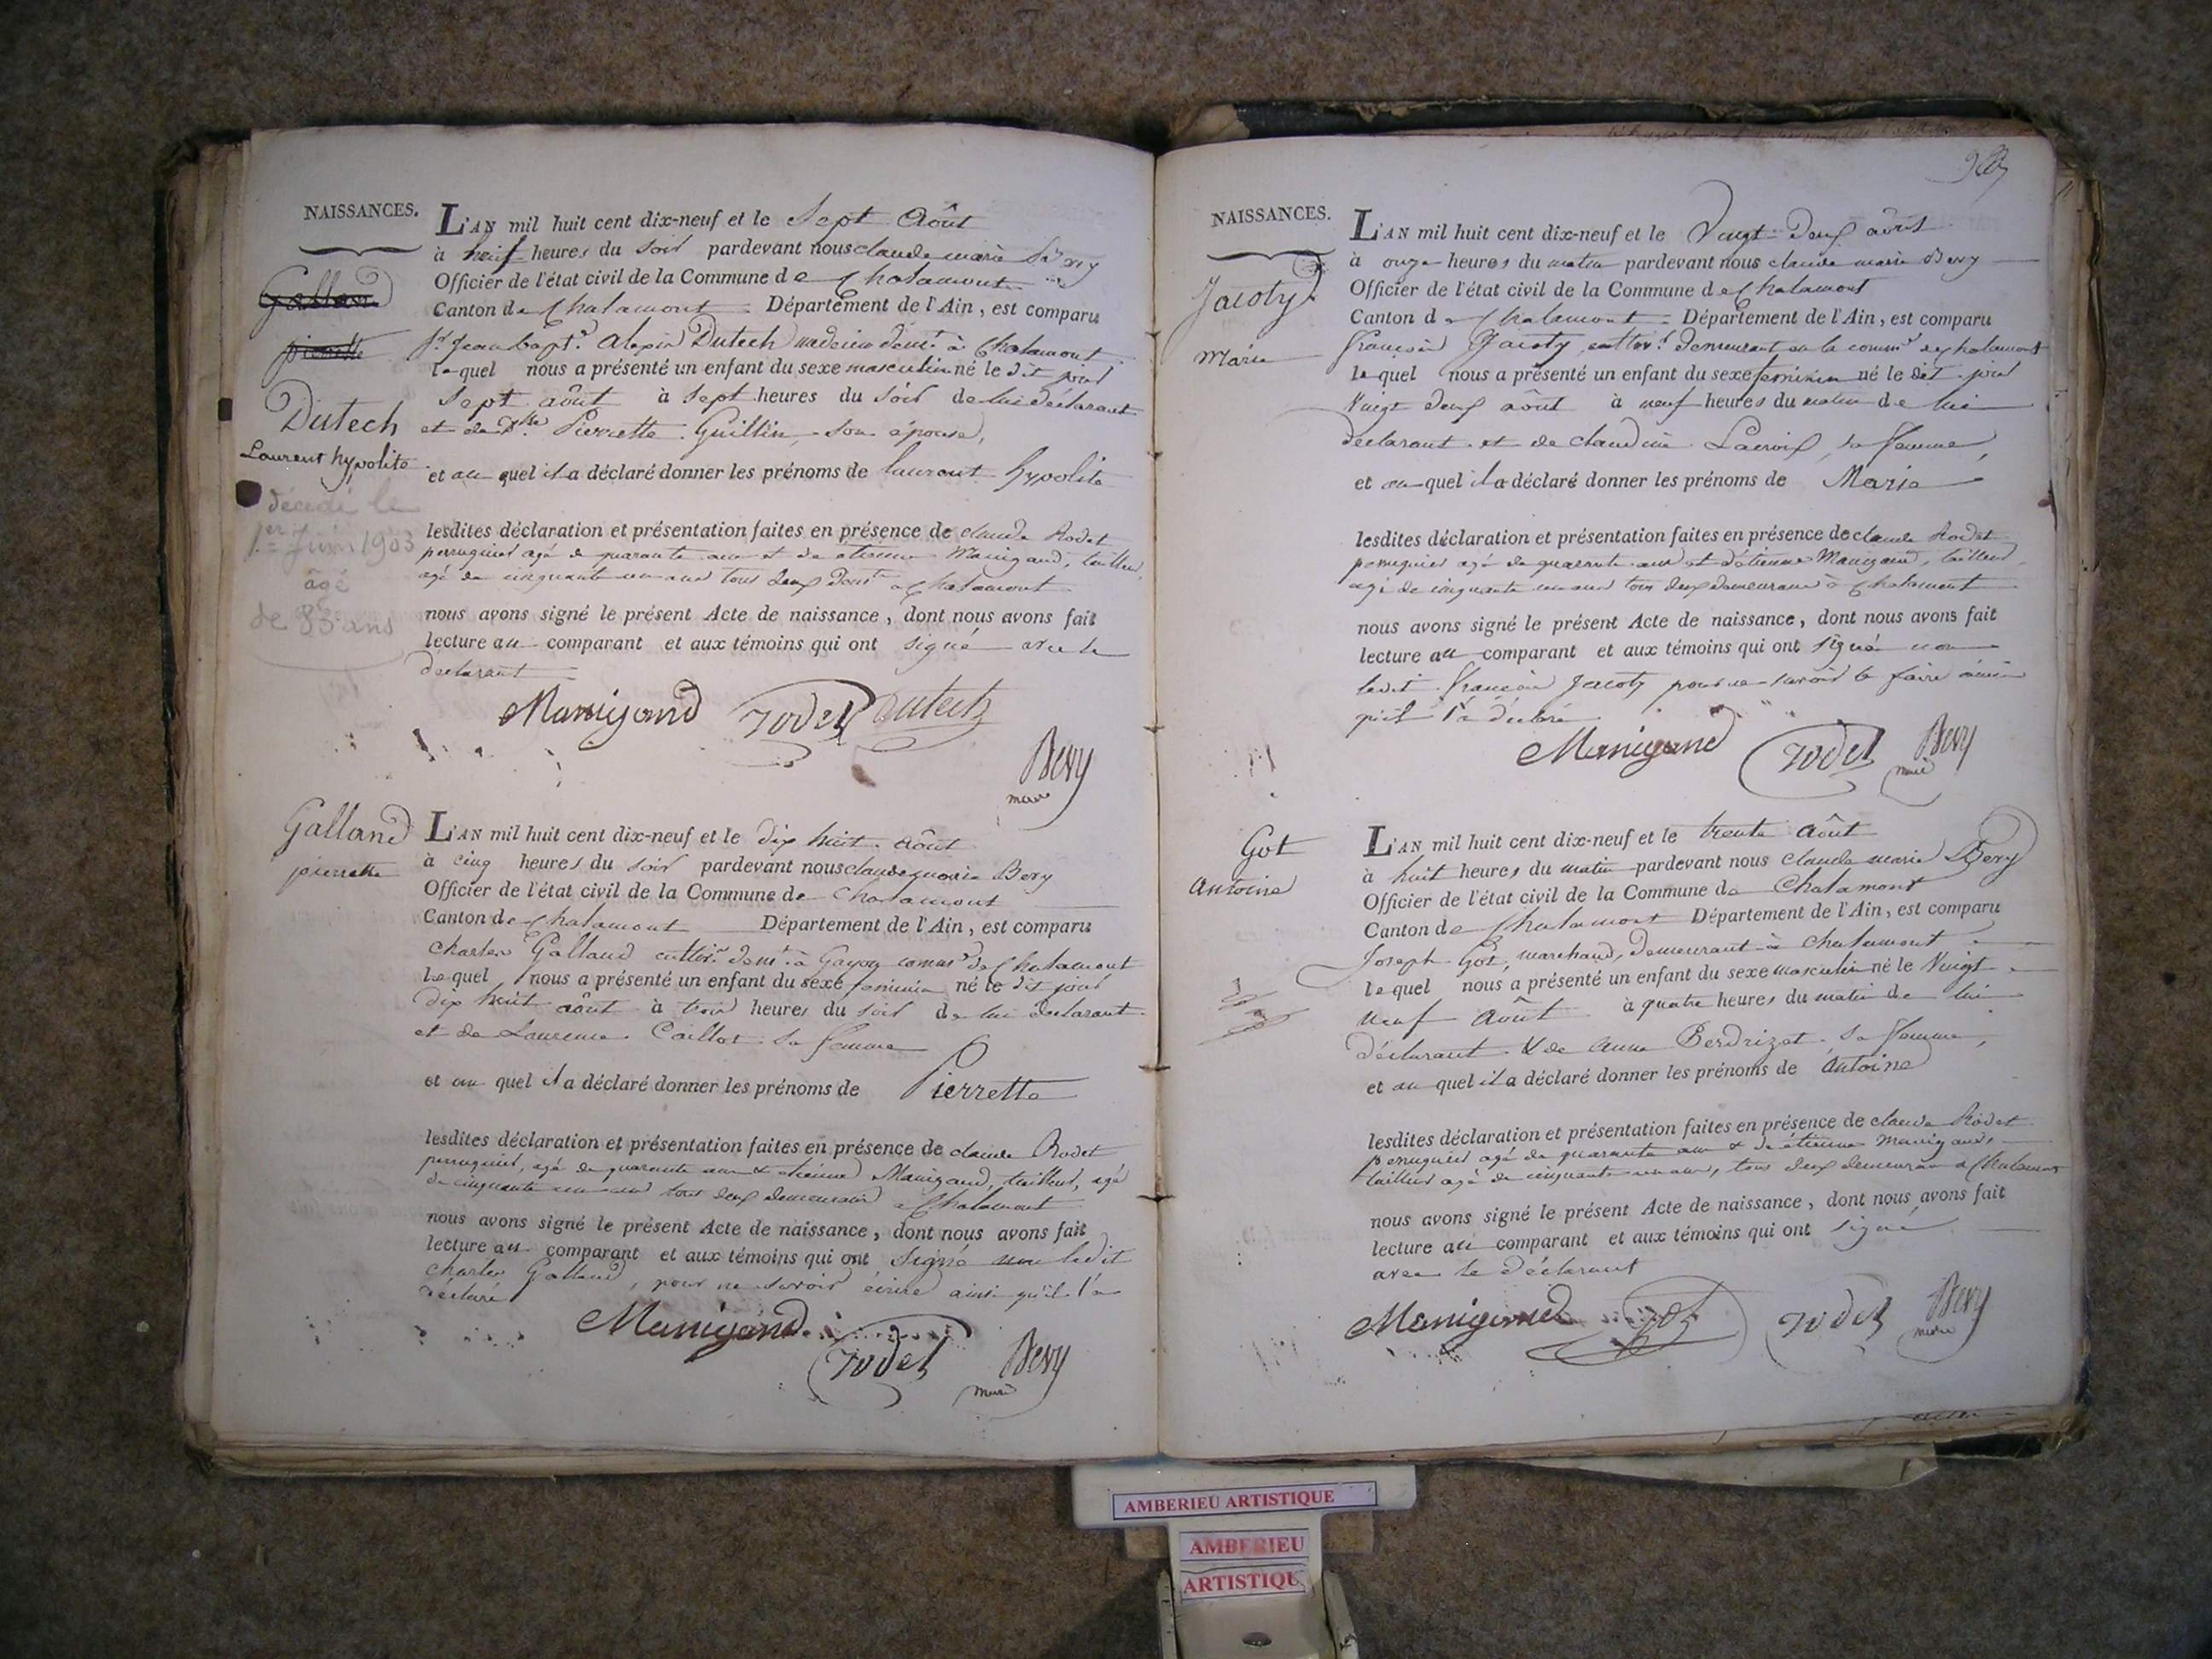 NAISSANCES.
Galland
pierrette
Dutech
Laurent hypolite
décédé le
1er Juin 1903
âgé
de 83 ans
L'AN mil huit cent dix-neuf et le Sept Août
à heures du soir pardevant nous claude marie Bevy
Officier de l'état civil de la Commune de Chalamont
Canton de Chalamont Département de l'Ain, est comparu
Sr. Jean bapt.e Alexis Dutech medecin demt. à Chalamont
lequel nous a présenté un enfant du sexe masculin né le dit jour
Sept août à Sept heures du Soir de lui déclarant
et de Dlle Pierrette Guillin son épouse,
et au quel il a déclaré donner les prénoms de laurent hypolite
lesdites déclaration et présentation faites en présence de claude Rodet
perruquier agé de quarante ans et de étienne Manigand, tailleur,
agé de cinquante un ans tous deux demt. à Chalamont
nous avons signé le présent Acte de naissance, dont nous avons fait
lecture au comparant et aux témoins qui ont signé avec le
declarant
Manigand rodet Dutech
Bevy
maire
Galland
pierrette
L'AN mil huit cent dix-neuf et le dix huit Août
à cinq heures du soir pardevant nous claude marie Bevy
Officier de l'état civil de la Commune de Chalamont
Canton de Chalamont Département de l'Ain, est comparu
Charles Galland cultivr. demt. à comme. de Chalamont
lequel nous a présenté un enfant du sexe feminin né le dit jour
dix huit août à trois heures du soir de lui déclarant
et de Laurence Caillot sa femme
et au quel il a déclaré donner les prénoms de Pierrette
lesdites déclaration et présentation faites en présence de claude Rodet
perruquier, agé de quarante ans & étienne Manigand, tailleur, agé
de cinquante un ans tous deux demeurans à Chalamont
nous avons signé le présent Acte de naissance, dont nous avons fait
lecture au comparant et aux témoins qui ont signé non ledit
Charles Galland, pour ne savoir écrire ainsi qu'il l'a
déclaré
Manigand
rodet Bevy
maire
NAISSANCES.
Jacoty
Marie
L'AN mil huit cent dix-neuf et le Vingt deux août
à onze heures du matin pardevant nous claude marie Bevy
Officier de l'état civil de la Commune de Chalamont
Canton de Chalamont Département de l'Ain, est comparu
françois Jacoty cultivr. demeurant en la comme. de chalamont
lequel nous a présenté un enfant du sexe feminin né le dit jour
Vingt deux août à neuf heures du matin de lui
déclarant et de claudine Lacroix, sa femme,
et au quel il a déclaré donner les prénoms de Marie
lesdites déclaration et présentation faites en présence de claude Rodet
perruquier agé de quarante ans et d'étienne Manigand, tailleur,
agé de cinquante un ans tous deux demeurans à Chalamont
nous avons signé le présent Acte de naissance, dont nous avons fait
lecture au comparant et aux témoins qui ont signé non
ledit françois Jacoty pour ne savoir le faire ainsi
qu'il l'a déclaré
Manigand rodet Bevy
maire
Got
Antoine
L'AN mil huit cent dix-neuf et le trente Août
à huit heures du matin pardevant nous claude marie Bevy
Officier de l'état civil de la Commune de Chalamont
Canton de Chalamont Département de l'Ain, est comparu
Joseph Got, marchand, demeurant à chalamont
lequel nous a présenté un enfant du sexe masculin né le Vingt
neuf Août à quatre heures du matin de lui
déclarant & de anne Perdrizet sa femme,
et au quel il a déclaré donner les prénoms de Antoine
lesdites déclaration et présentation faites en présence de claude Rodet
perruquier agé de quarante ans & de étienne Manigand,
tailleur agé de cinquante un ans, tous deux demeurans à Chalamont
nous avons signé le présent Acte de naissance, dont nous avons fait
lecture au comparant et aux témoins qui ont signé
avec le déclarant
Manigand Got rodet Bevy
maire
AMBERIEU ARTISTIQUE
AMBERIEU
ARTISTIQU